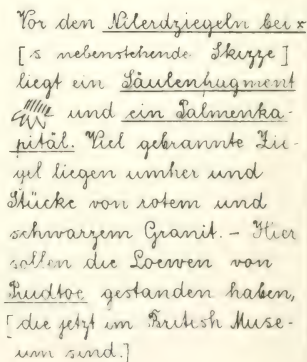 Vor den Nilerdziegeln bei x
[s nebenstehende Skizze]
liegt ein Säulenfragment
und ein Palmenka-
pitäl. Viel gebrannte Zie-
gel liegen umher und
Stücke von rotem und
schwarzem Granit. – Hier
sollen die Loewen von
gestanden haben,
[die jetzt im British Muse-
um sind.]